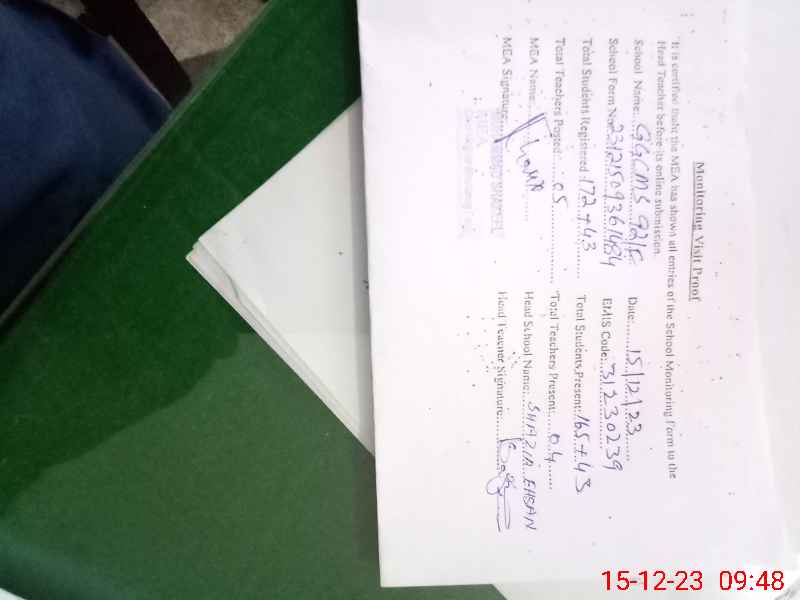 Monitoring Visit Proof
"It is certified thaht the MEA has shown all entries of the School Monitoring Form to the
Head Teacher before its online submission.
School Name: GGCMS 92/F Date: 15/12/23
School Form No: 23121509361484 EMIS Code: 31230239
Total Students Registered 172+43 Total Students Present: 165+43
Total Teachers Posted: 05 Total Teachers Present: 04
MEA Name: Head School Name: SHAZIA EHSAN
MEA Signature: Head Teacher Signature:
MEA
15-12-23 09:48